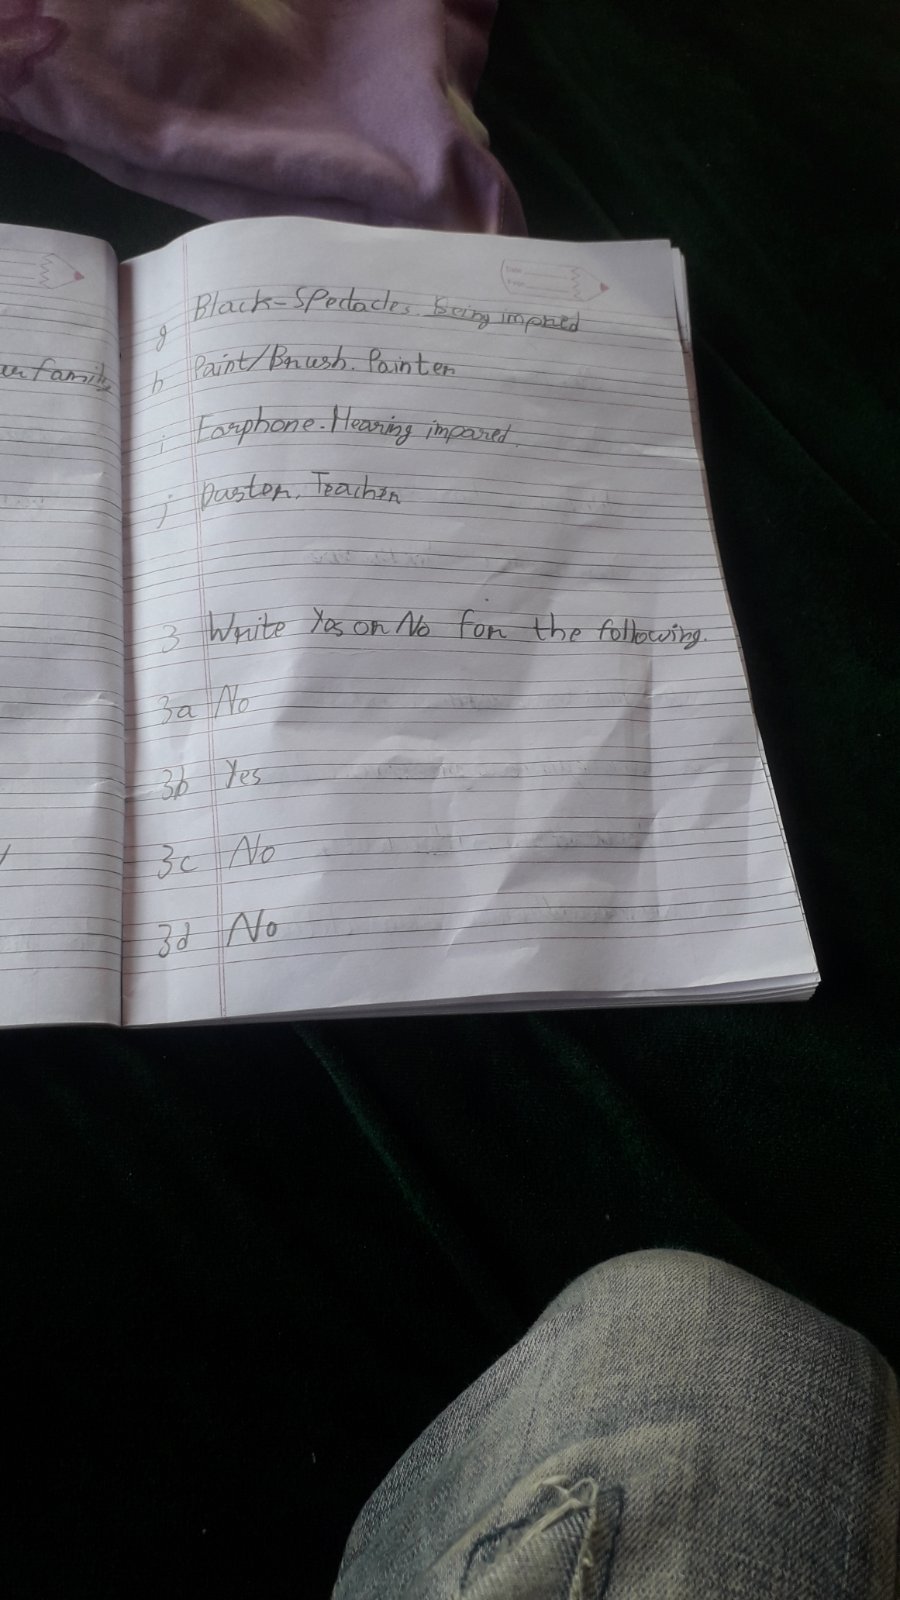 ur family
g Black-Spectacles. Being impaied
h Paint/Brush. Painter
i Earphone. Hearing impared.
j Duster. Teacher
3 Write Yes or No for the following.
3a No
3b Yes
3c No
3d No